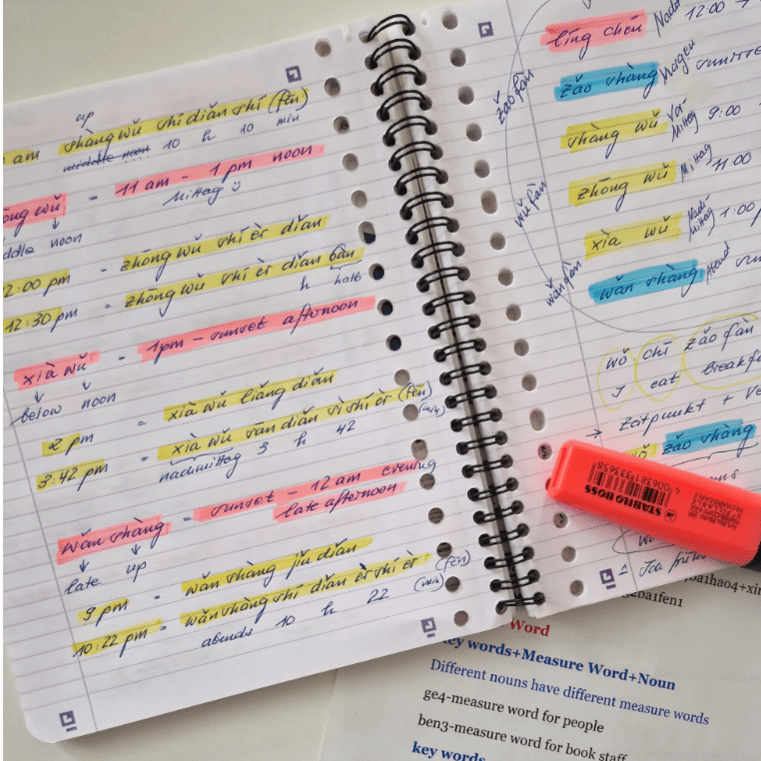 up
am shàng wǔ shí diǎn shí (fēn)
middle noon 10 h 10 min
ōng wǔ = 11 am - 1 pm noon
ddle noon Mittag
2:00 pm - zhōng wǔ shí èr diǎn
12:30 pm = zhōng wǔ shí èr diǎn bàn
h half
xià wǔ = 1pm - sunset afternoon
below noon
2 pm = xià wǔ liǎng diǎn
3:42 pm = xià wǔ san diǎn sì shí èr (fēn)
nachmittag 3 h 42 (min)
wǎn shàng = sunset - 12 am evening
late afternoon
late up
9 pm = wǎn shàng jiǔ diǎn
10:22 pm = wǎn shàng shí diǎn èr shí èr (fēn)
abends 10 h 22 (min)
líng chén 12:00
zǎo shàng sunrise
shàng wǔ Vor-Mittag 9:00
zhōng wǔ Mittag 11:00
xià wǔ Nach-Mittag 1:00
wǎn shàng sun
zǎo fàn
wǔ fàn
wǎn fàn
wǒ chī zǎo fàn
I eat breakf
→ Zeitpunkt + Ve
zǎo shàng
STABILO BOSS
4 006381 333658
Ich früh
ba1hao4+xin
Word
key words+Measure Word+Noun
Different nouns have different measure words
ge4-measure word for people
ben3-measure word for book staff
key words